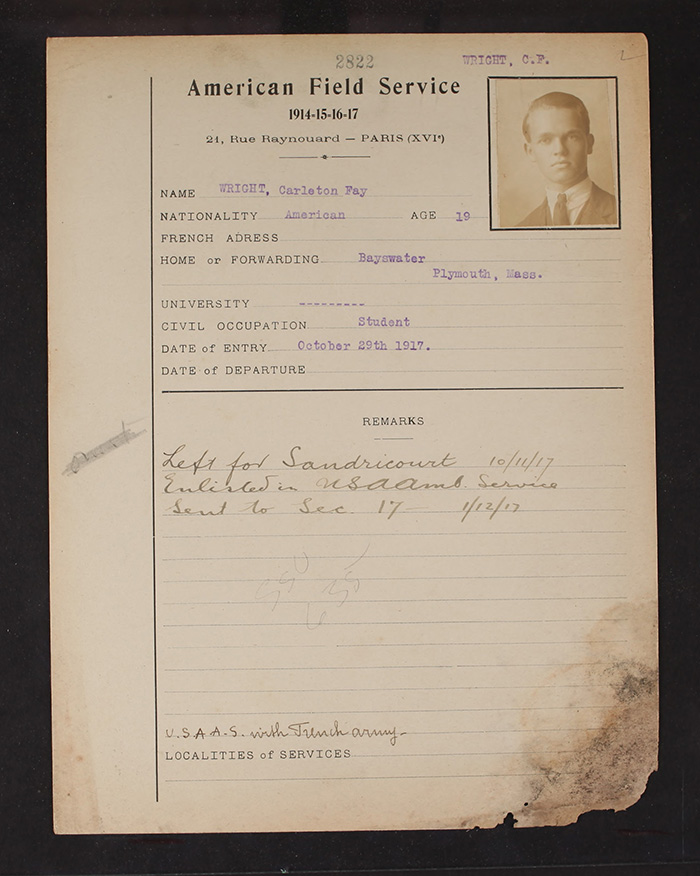 2822
WRIGHT, C.F.
American Field Service
1914-15-16-17
21, Rue Raynouard — PARIS (XVIe)
NAME WRIGHT, Carleton Fay
NATIONALITY American AGE 19
FRENCH ADRESS
HOME or FORWARDING Bayswater
Plymouth, Mass.
UNIVERSITY ---------
CIVIL OCCUPATION Student
DATE of ENTRY October 29th 1917.
DATE of DEPARTURE
REMARKS
Left for Sandricourt 10/11/17
Enlisted in USAAmb. Service
Sent to Sec. 17 — 1/12/17
U.S.A.A.S. with French army—
LOCALITIES of SERVICES